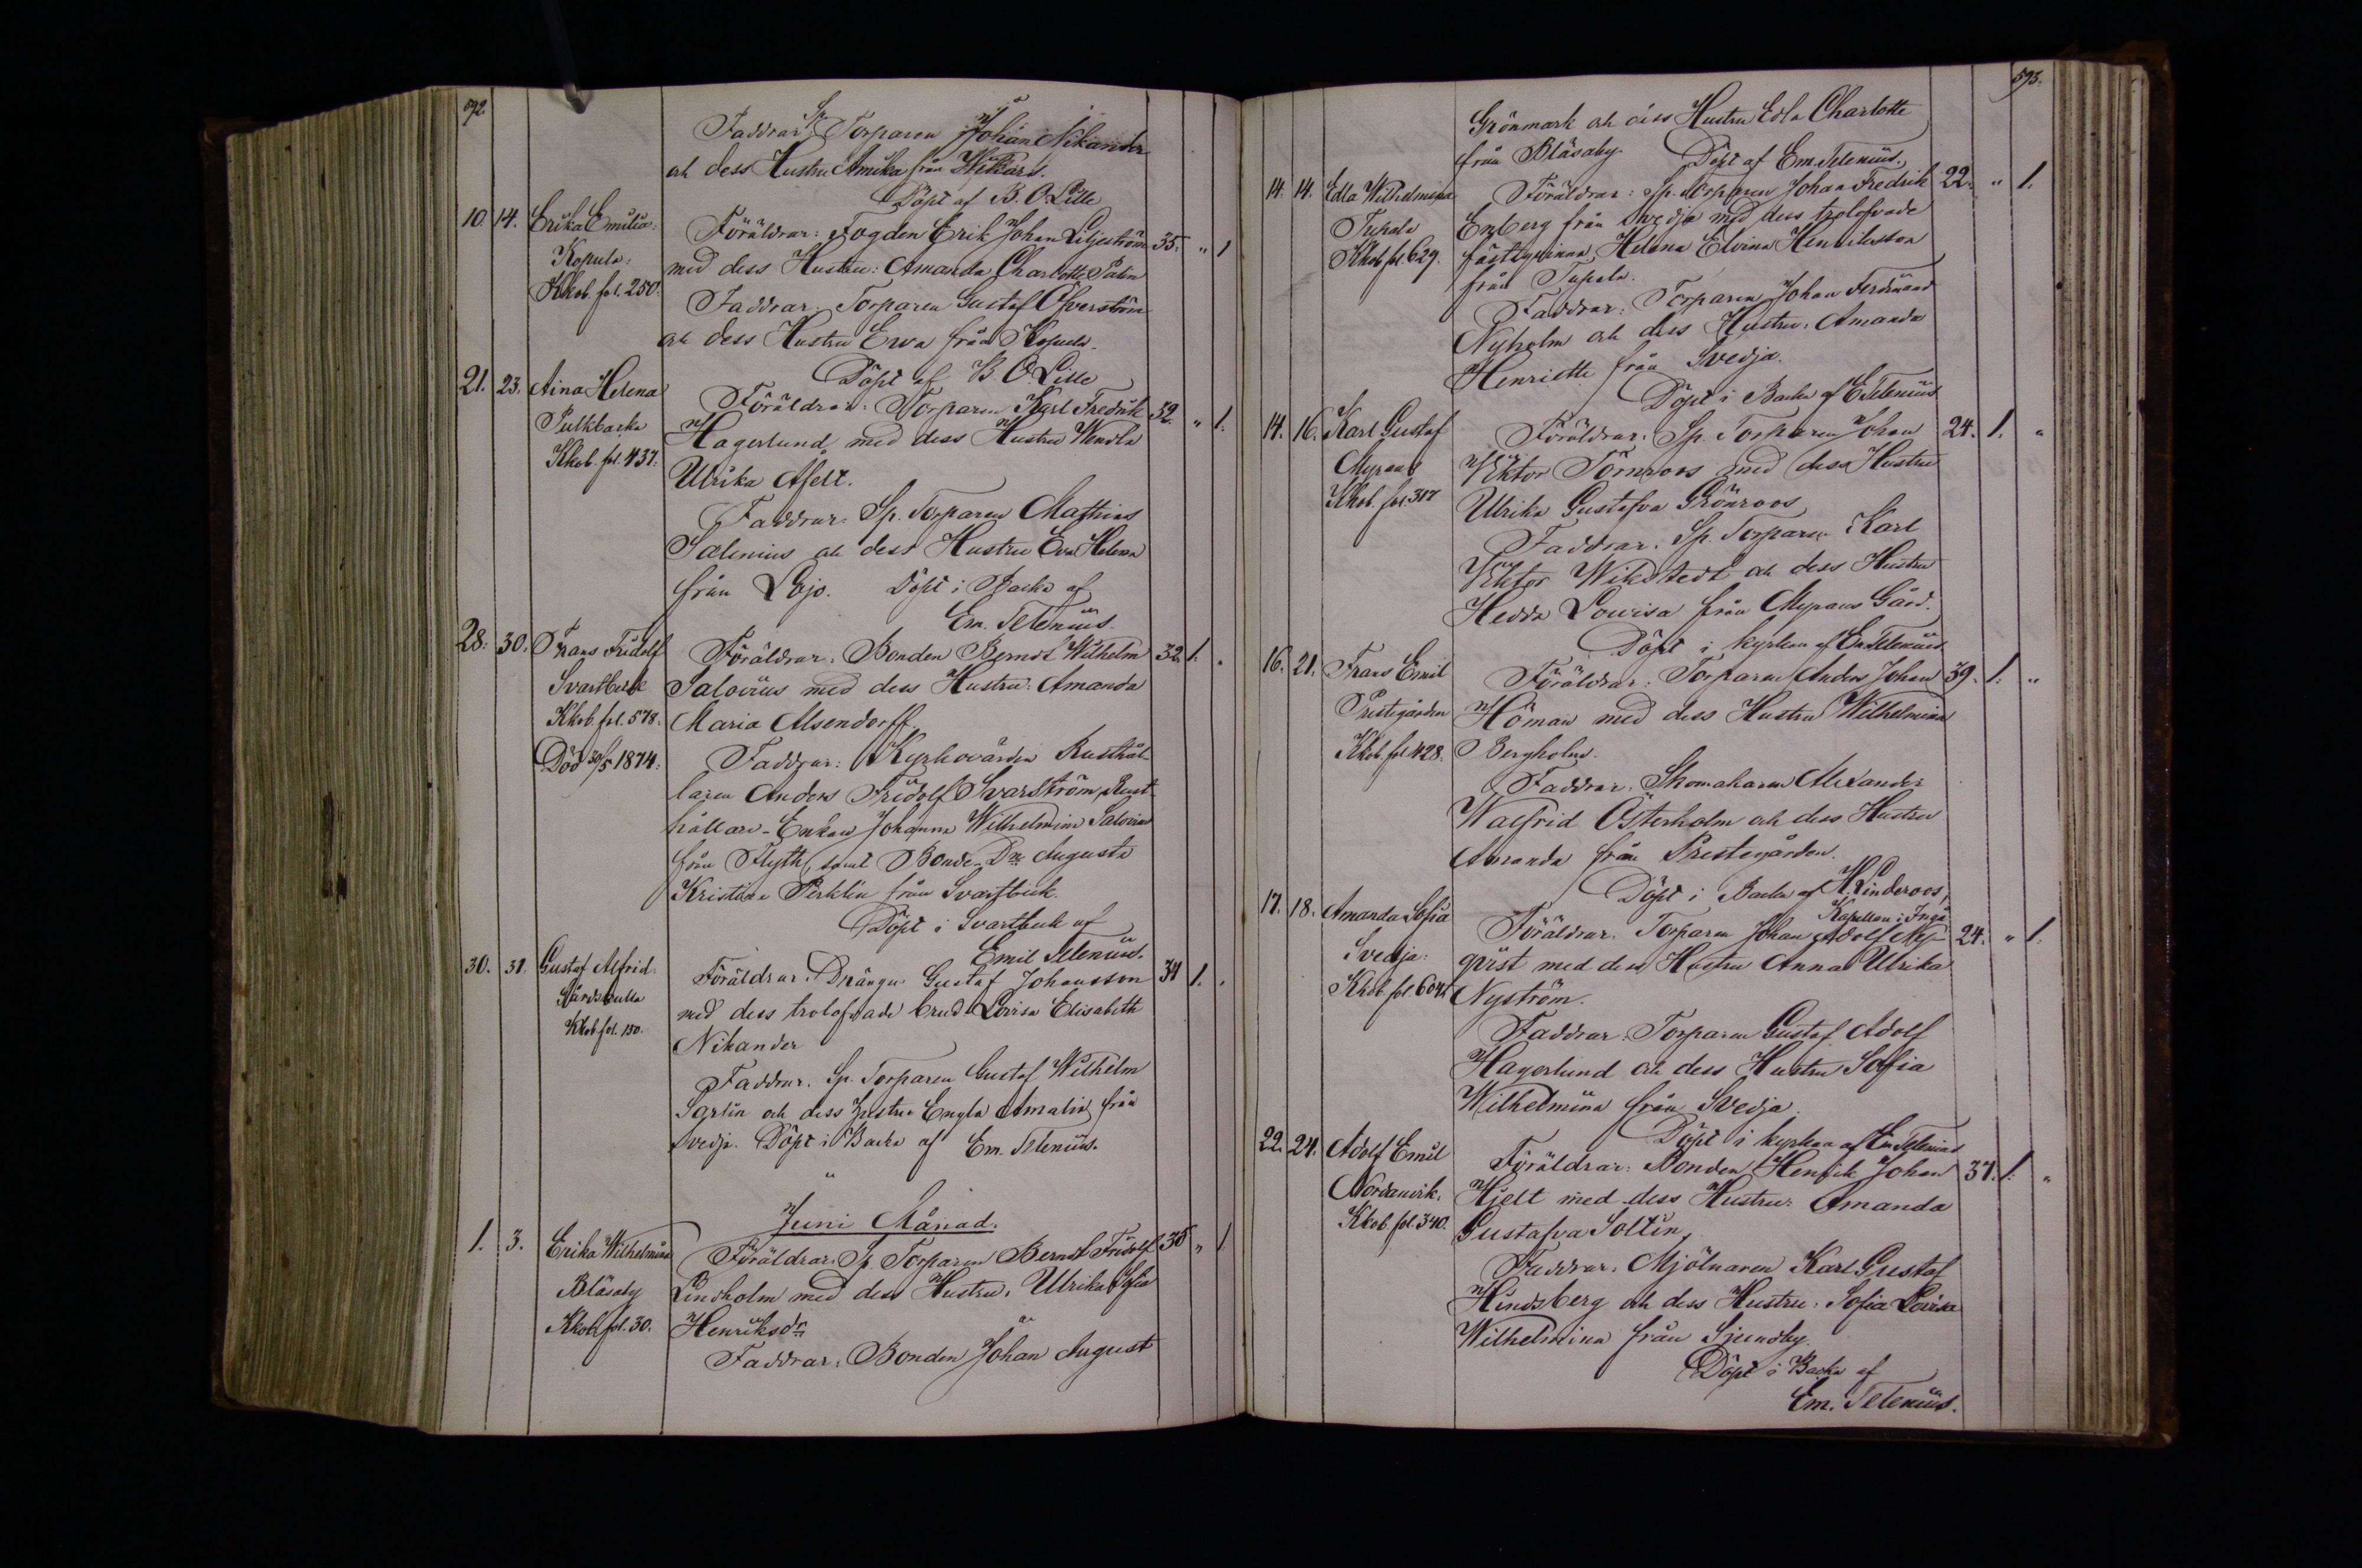 592.
Faddrar: Sp. Torparen Johan Nikander
och dess Hustru Amika från Wikars.
Döpt af B. O. Lille
10. 14. Erika Emilia: Föräldrar: Fogden Erik Johan Liljeström 35. " 1
Kopula: med dess Hustru: Amanda Charlotte Palin
Kkob. fol. 250. Faddrar: Torparen Gustaf Öfverström
och dess Hustru Ewa från Kopula.
Döpt af B. O. Lille
21. 23. Aina Helena Föräldrar: Torparen Karl Fredrik 32. " 1.
Pulkbacka Hagerlund med dess Hustru Wendla
Kkob. fol. 437: Ulrika Afelt.
Faddrar: Sp. Torparen Mathias
Salenius och dess Hustru Eva Helena
från Lojo. Döpt i Backa af
Em. Telenius.
28. 30. Frans Fridolf Föräldrar: Bonden Berndt Wilhelm 32. 1. "
Svartbeck Salovius med dess Hustru: Amanda
Kkob. fol. 578. Maria Alsendorff
Död 30/5 1874. Faddrar: Kyrkovärden Rusthål-
laren Anders Fridolf Svarström, Rust-
hållare-Enkan Johanna Wilhelmina Salovius
från Flyth, samt Bonde-Dr Augusta
Kristina Perklin från Svartbeck.
Döpt i Svartbeck af
Emil Telenius.
30. 31. Gustaf Alfrid. Föräldrar: Drängen Gustaf Johansson 31 1. "
Gårdskulla med dess trolofvade brud Lovisa Elisabeth
Kkob. fol. 150. Nikander
Faddrar: Sp. Torparen Gustaf Wilhelm
Sarlin och dess Hustru Engla Amalia från
Svedja. Döpt i Backa af Em. Telenius.
"
Juni Månad.
1. 3. Erika Wilhelmina Föräldrar: Sp. Torparen Berndt Fridolf 35 " 1
Blåsaby Lindholm med dess Hustru: Ulrika Sofia
Kkob. fol. 30. Henriksdr
Faddrar: Bonden Johan August
593.
Grönmark och dess Hustru Edla Charlotte
från Blåsaby. Döpt af Em. Telenius.
14. 14. Edla Wilhelmina Föräldrar: Sp. Torparen Johan Fredrik 22. " 1.
Tupala Enberg från Svedja med dess trolofvade
Kkob. fol. 629. fästeqvinna, Helena Elvina Henriksson
från Tupala.
Faddrar: Torparen Johan Ferdinand
Nyholm och dess Hustru: Amanda
Henriette från Svedja.
Döpt i Backa af E Telenius
14. 16. Karl Gustaf Föräldrar: Sp. Torparen Johan 24. 1. "
Myrans Viktor Törnroos med dess Hustru
Kkob. fol. 317 Ulrika Gustafva Grönroos
Faddrar: Sp. Torparen Karl
Viktor Wikstedt och dess Hustru
Hedda Lowisa från Myrans Gård.
Döpt i kyrkan af Em Telenius
16. 21. Frans Emil Föräldrar: Torparen Anders Johan 39. 1. "
Prestegården Höman med dess Hustru Wilhelmina
Kkob. fol. 428. Bergholm.
Faddrar: Skomakaren Alexander
Walfrid Österholm och dess Hustru
Amanda från Prestegården.
Döpt i Backa af K. Linderoos,
Kapellan i Ingå
17. 18. Amanda Sofia Föräldrar: Torparen Johan Adolf Ny- 24. " 1.
Svedja: qvist med dess Hustru Anna Ulrika
Kkob. fol. 604. Nyström.
Faddrar: Torparen Gustaf Adolf
Hagerlund och dess Hustru Sofia
Wilhelmina från Svedja.
Döpt i kyrkan af Em Telenius
22. 24. Adolf Emil Föräldrar: Bonden Henrik Johan 37. 1. "
Nordanvik. Hjelt med dess Hustru: Amanda
Kkob. fol. 340. Gustafva Soltin,
Faddrar: Mjölnaren Karl Gustaf
Hindsberg och dess Hustru: Sofia Lovisa
Wilhelmina från Sjundby.
Döpt i Backa af
Em. Telenius.